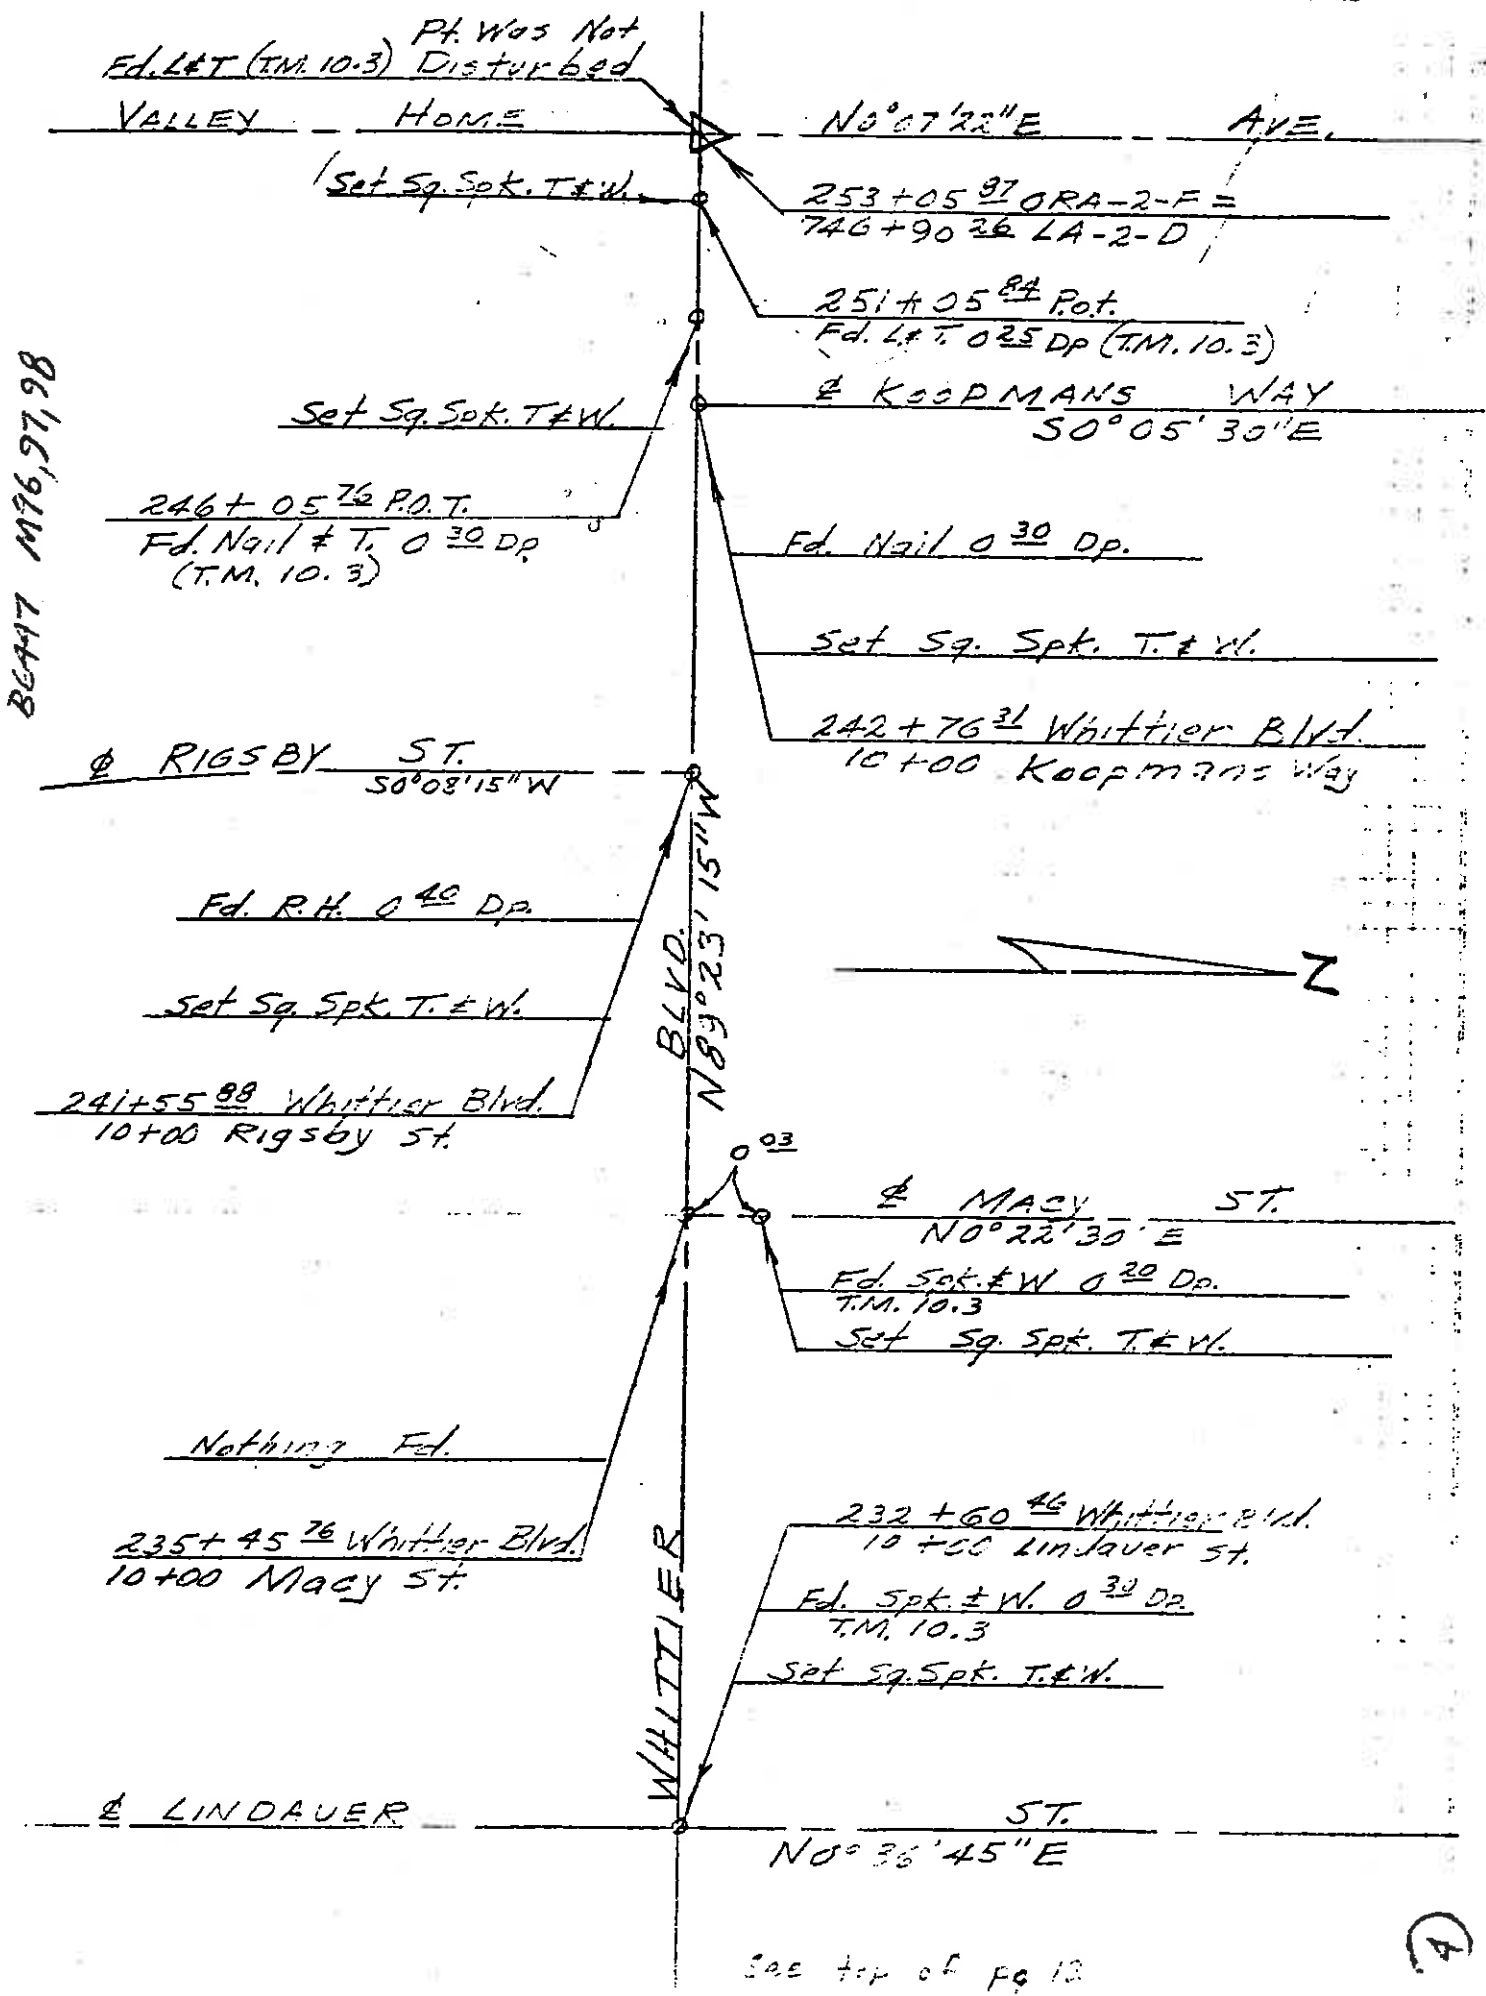 Pt. Was Not
Fd. L&T (T.M. 10.3) Disturbed
VALLEY HOME N0°07'22"E AVE.
Set Sq. Spk. T&W.
253+05 97 ORA-2-F =
746+90 26 LA-2-D
251+05 84 P.o.t.
Fd. L&T. 0 25 Dp (T.M. 10.3)
℄ KOOPMANS WAY
S0°05'30"E
Set Sq. Spk. T&W.
246+05 76 P.O.T.
Fd. Nail & T. 0 30 Dp
(T.M. 10.3)
Fd. Nail 0 30 Dp.
Set Sq. Spk. T. & W.
242+76 31 Whittier Blvd.
10+00 Koopmans Way
℄ RIGSBY ST.
S0°08'15"W
Fd. R.H. 0 40 Dp.
Set Sq. Spk. T. & W.
241+55 88 Whittier Blvd.
10+00 Rigsby St.
WHITTIER BLVD.
N89°23'15"W
Z
0 03
℄ MACY ST.
N0°22'30"E
Fd. Spk. & W 0 20 Dp.
T.M. 10.3
Set Sq. Spk. T. & W.
Nothing Fd.
235+45 76 Whittier Blvd.
10+00 Macy St.
232+60 46 Whittier Blvd.
10+00 Lindauer St.
Fd. Spk. & W. 0 30 Dp.
T.M. 10.3
Set Sq. Spk. T. & W.
℄ LINDAUER ST.
N0°36'45"E
See top of pg 12
4